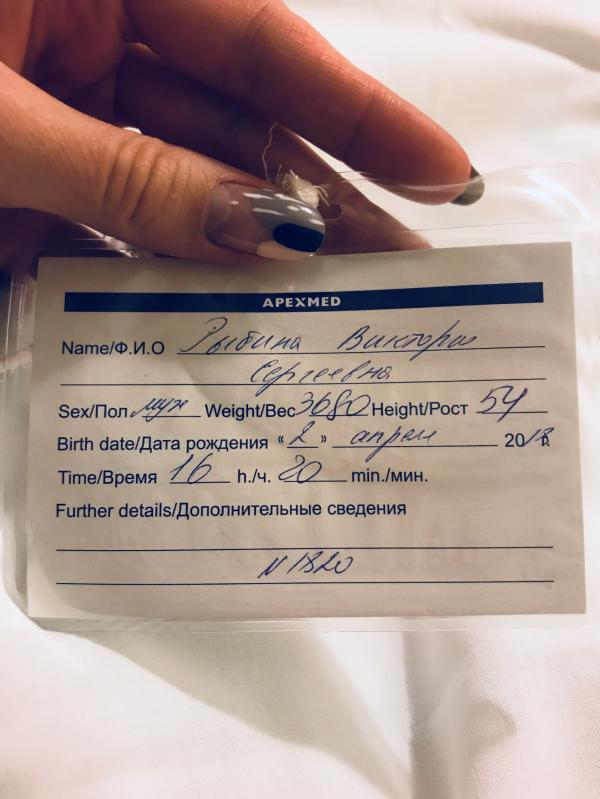 APEXMED
Name/Ф.И.О Рыбина Виктория
Сергеевна
Sex/Пол муж Weight/Вес 3680 Height/Рост 54
Birth date/Дата рождения «2» апреля 2018 г.
Time/Время 16 h./ч. 20 min./мин.
Further details/Дополнительные сведения
N 1820